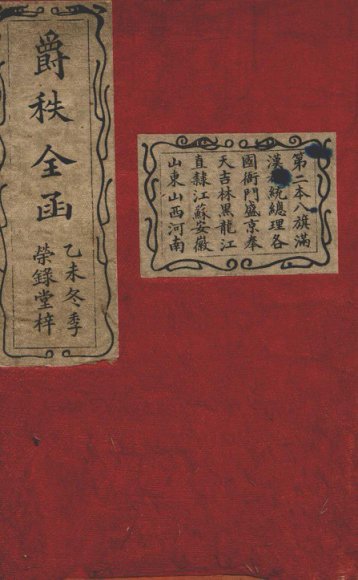 爵秩全函
乙未冬季
榮錄堂梓
第二本八旗滿
漢都統總理各
國衙門盛京奉
天吉林黑龍江
直隸江蘇安徽
山東山西河南